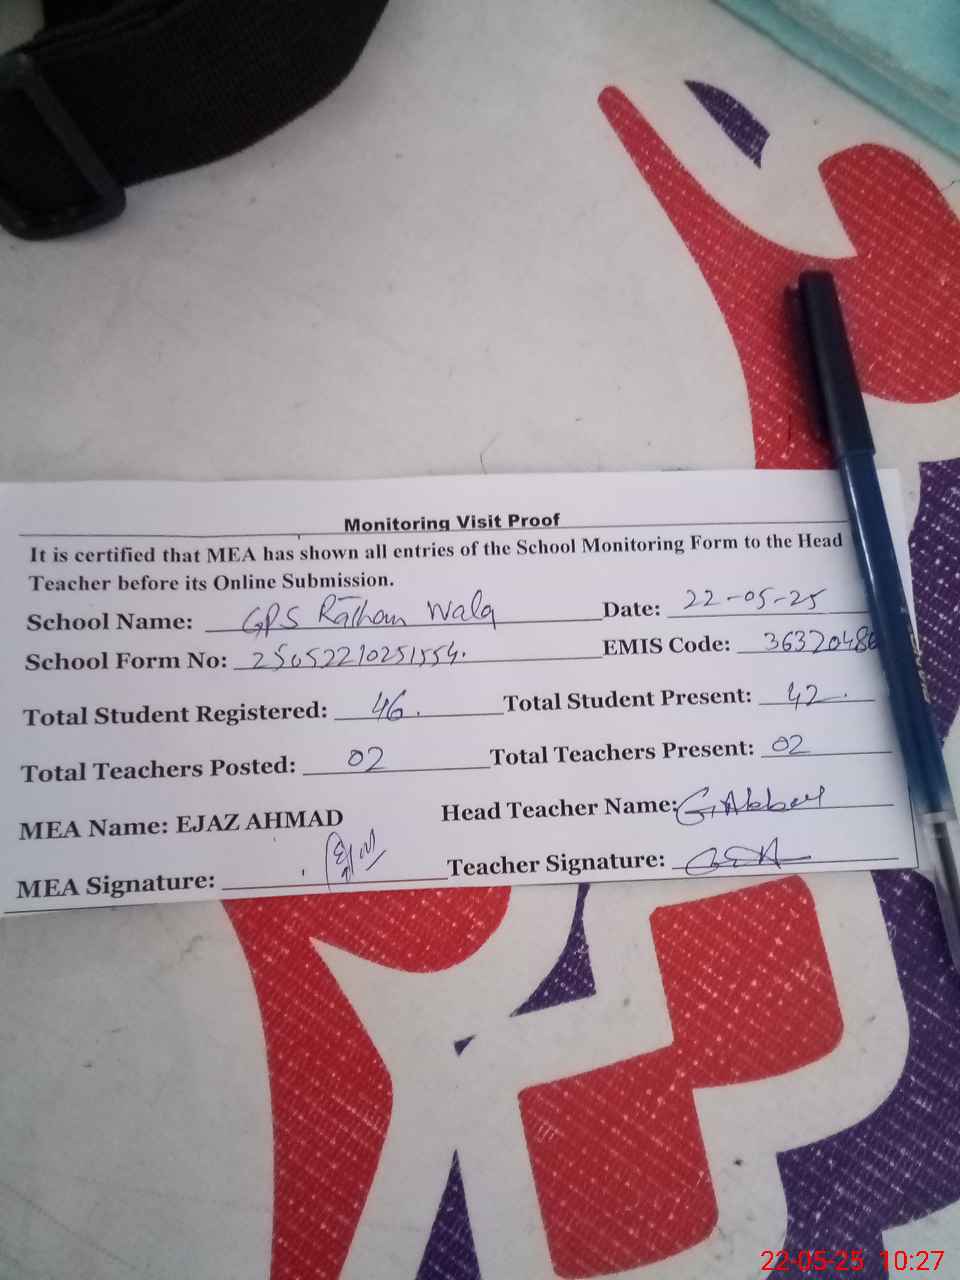 Monitoring Visit Proof
It is certified that MEA has shown all entries of the School Monitoring Form to the Head
Teacher before its Online Submission.
School Name: GPS Rathan Wala Date: 22-05-25
School Form No: 25052210251554. EMIS Code: 3632048
Total Student Registered: 46. Total Student Present: 42.
Total Teachers Posted: 02 Total Teachers Present: 02
MEA Name: EJAZ AHMAD Head Teacher Name: G. Abbas
MEA Signature: Teacher Signature:
22-05-25 10:27